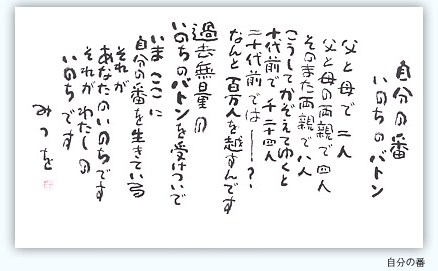 自分の番
いのちのバトン
父と母で二人
父と母の両親で四人
そのまた両親で八人
こうしてかぞえてゆくと
十代前で千二十四人
二十代前では――?
なんと百万人を越すんです
過去無量の
いのちのバトンを受けついで
いまここに
自分の番を生きている
それが
あなたのいのちです
それがわたしの
いのちです
みつを
自分の番